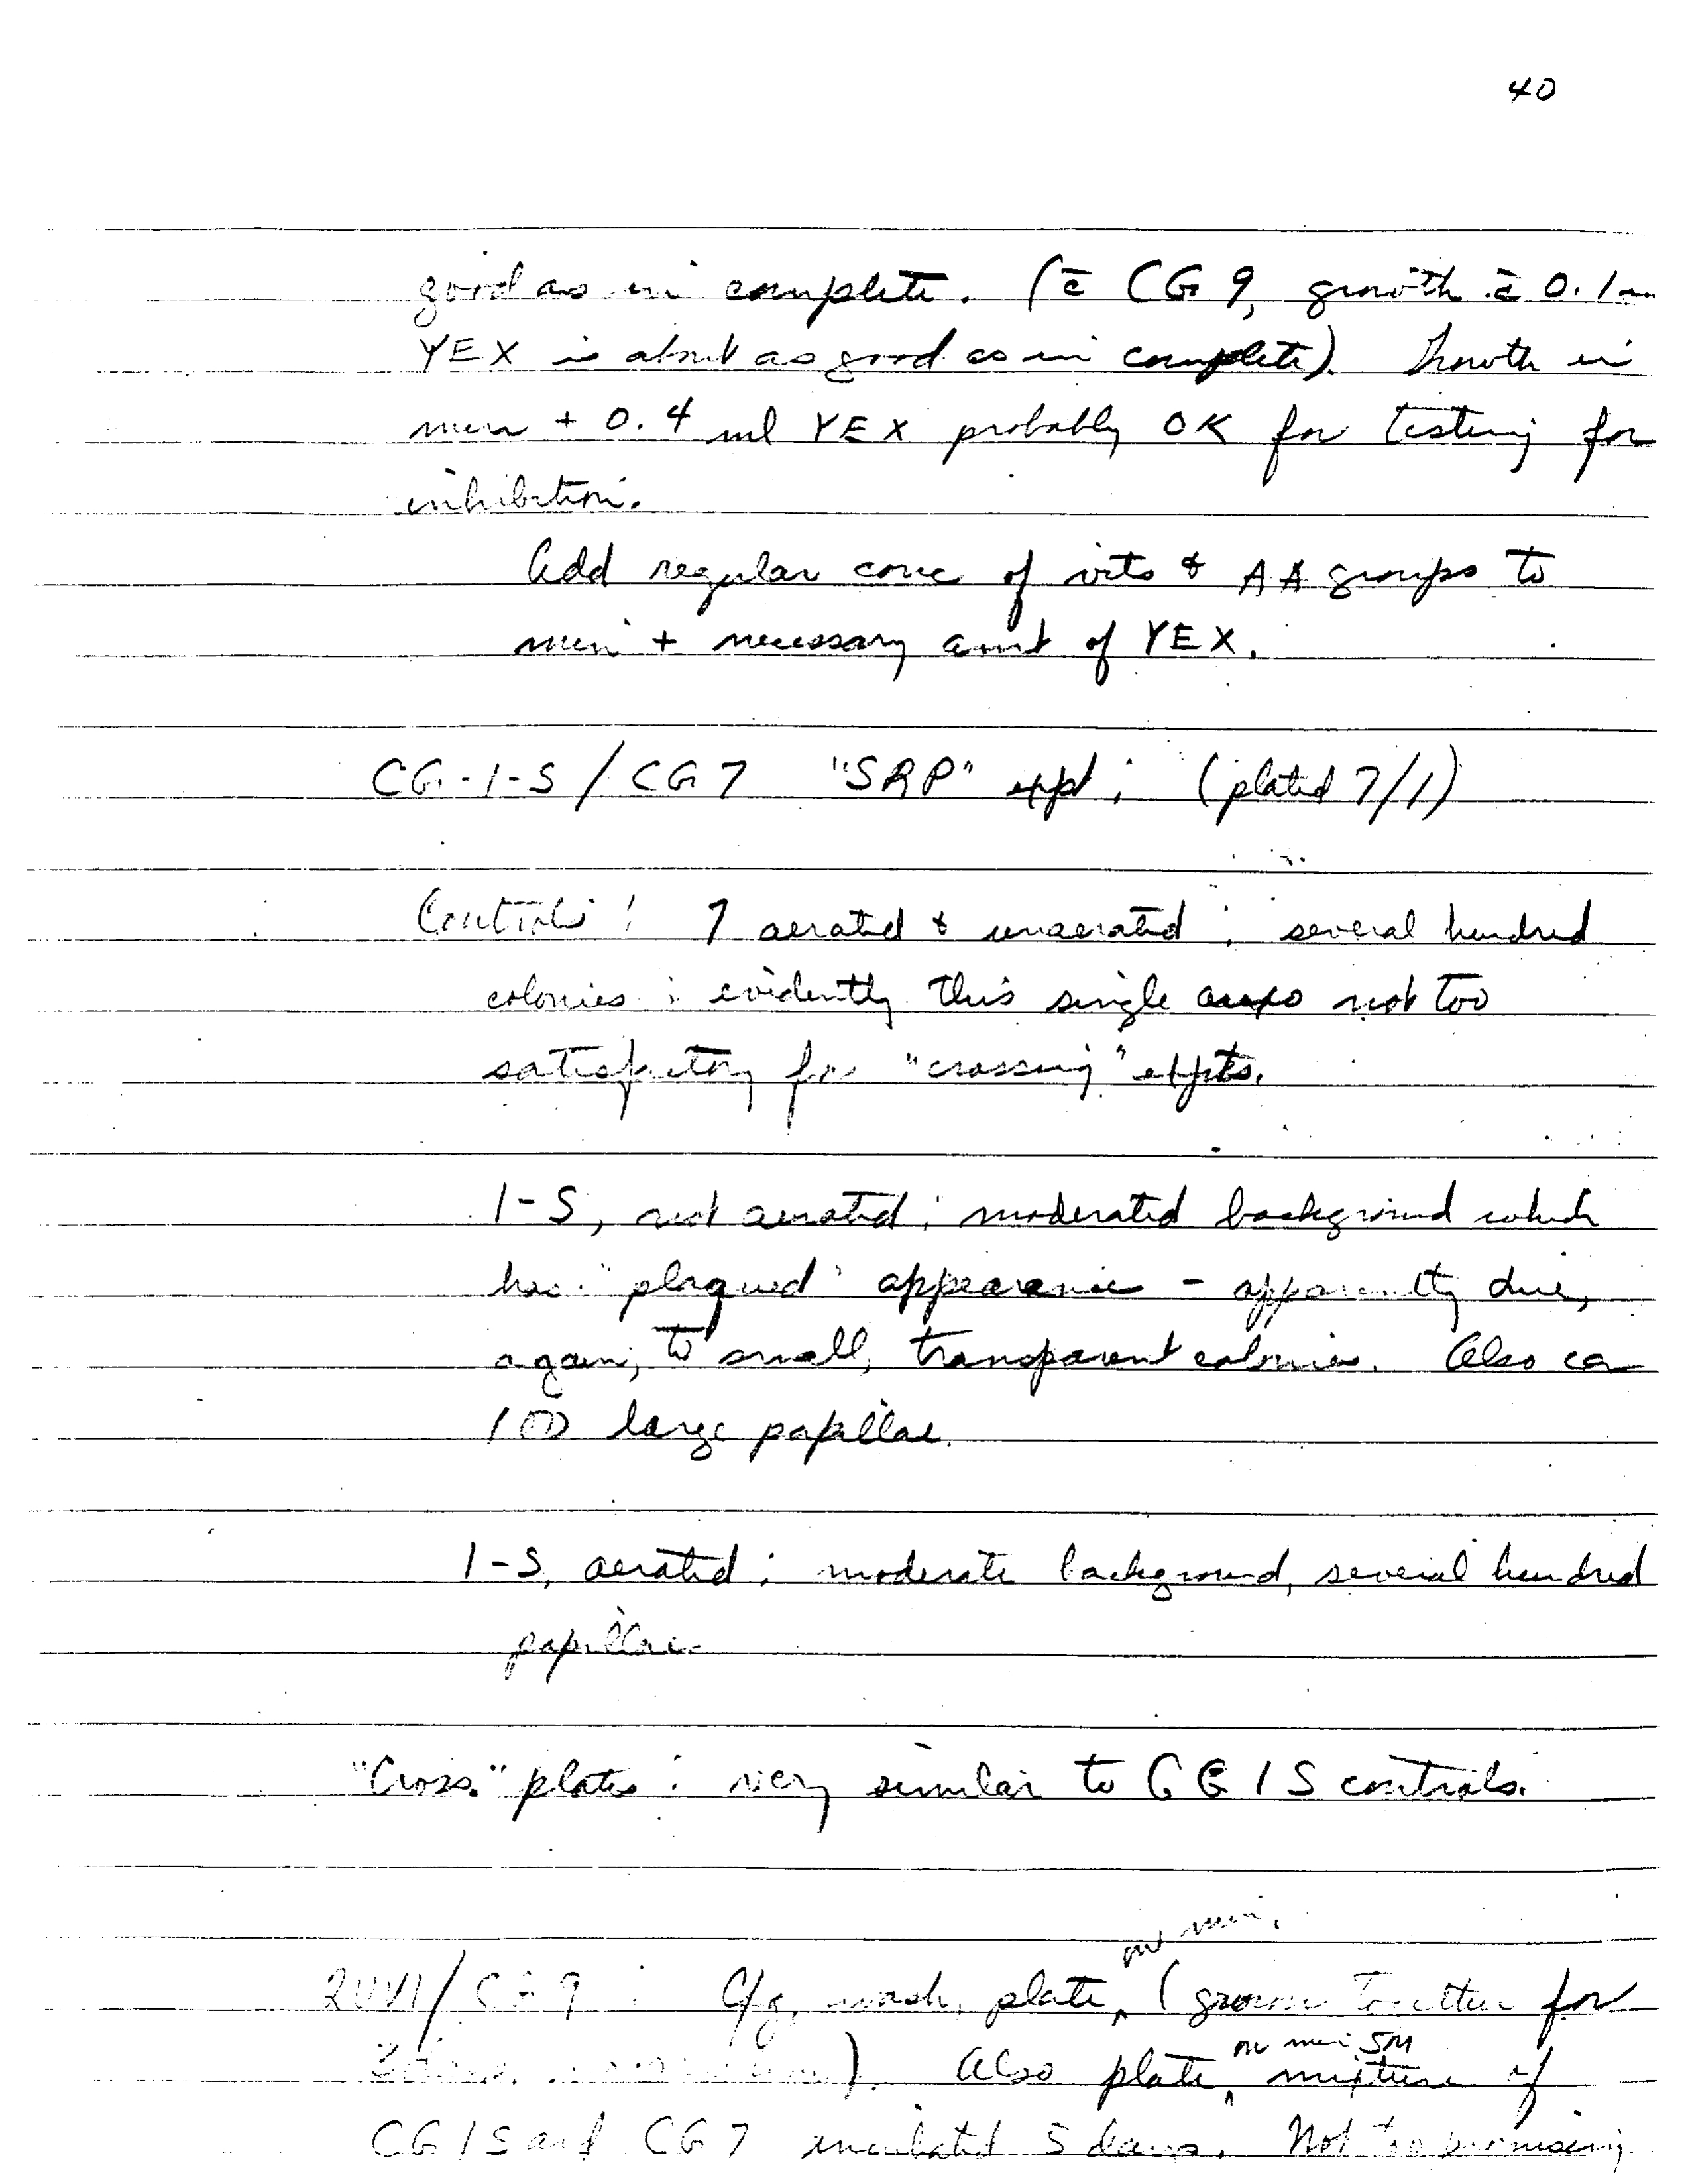 40
good as in complete. (c̄ CG 9, growth c̄ 0.1
YEX is about as good as in complete). Growth in
min + 0.4 ml YEX probably OK for testing for
inhibition.
Add regular conc of vits & AA groups to
min + necessary amt of YEX.
CG-1-S / CG 7 "SRP" expt: (plated 7/1)
Controls: 7 aerated & unaerated: several hundred
colonies; evidently this single auxo not too
satisfactory for "crossing" expts.
1-S, not aerated: moderated background which
has "plaqued" appearance - apparently due,
again, to small, transparent colonies. Also ca
100 large papillae.
1-S, aerated: moderate background, several hundred
papillae.
"Cross" plates: very similar to CG 1 S controls.
on min.
/ CG 9 : C/g, wash, plate, (grown together for
3 days). Also plate on min SM mixture of
CG 1 S and CG 7 incubated 5 days. Not too promising